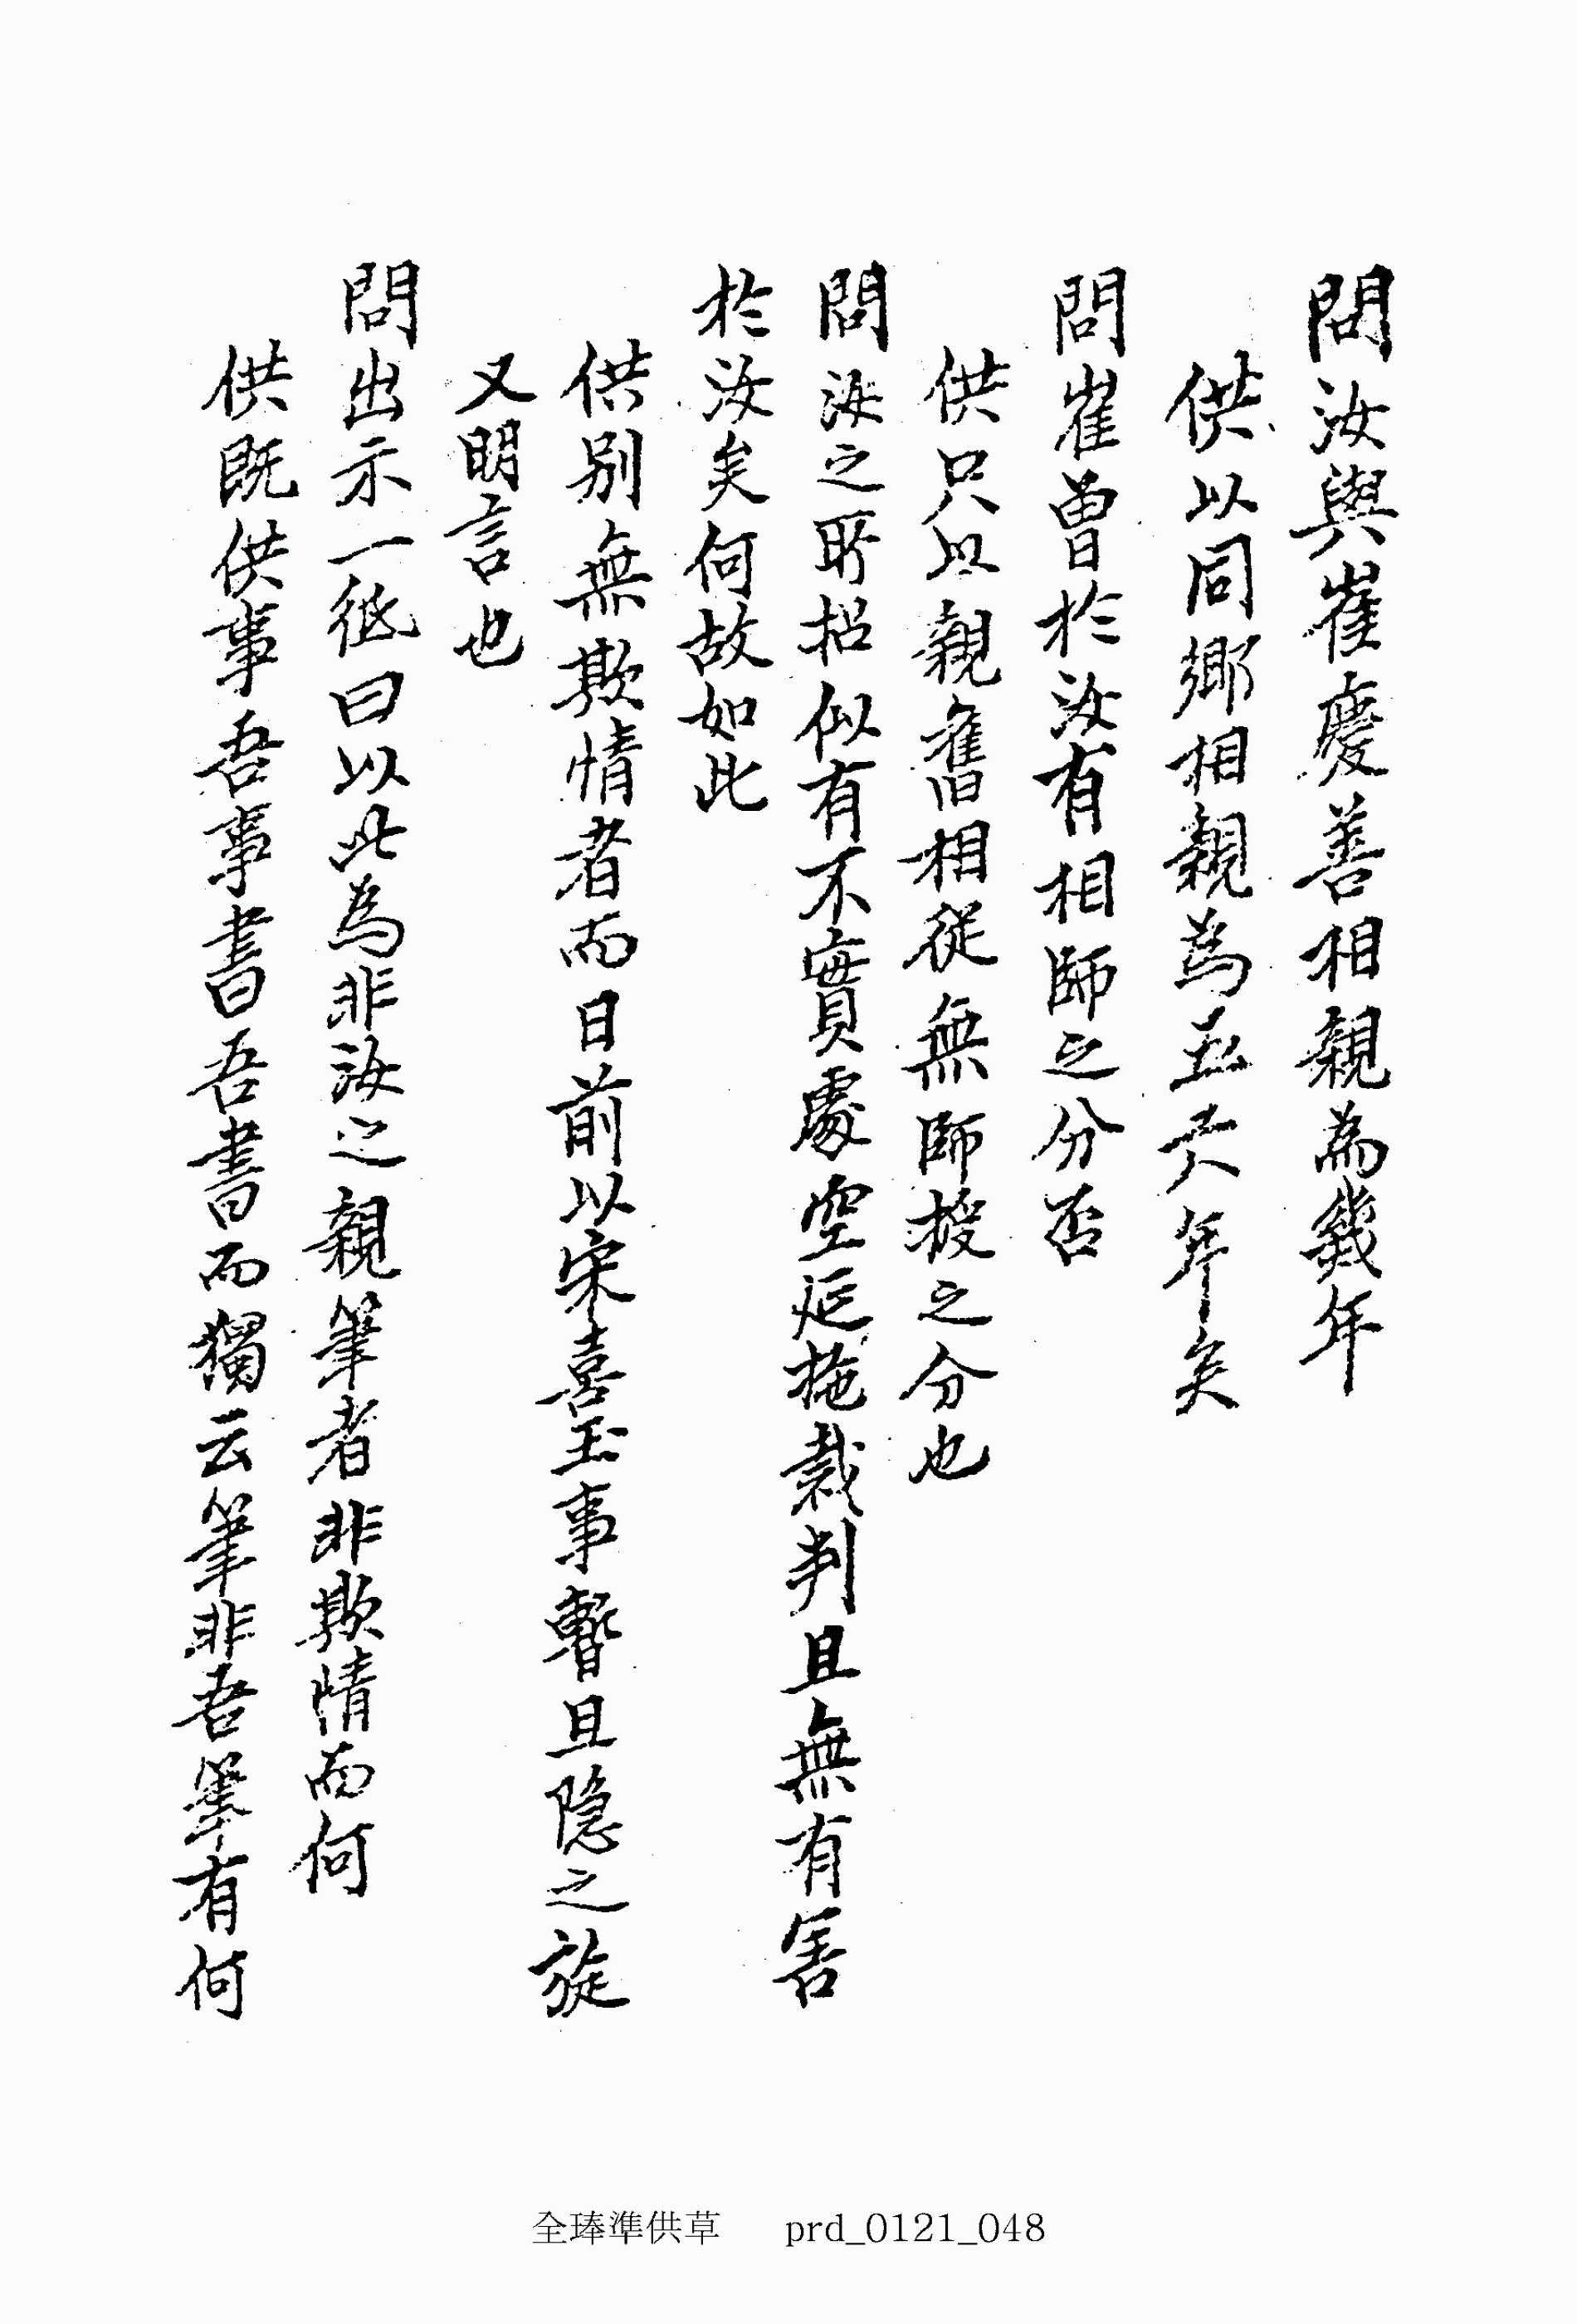 問汝與崔慶善相親為幾年
供以同鄉相親為五六年矣
問崔曾於汝有相師之分否
供只以親舊相從無師授之分也
問汝之所招似有不實處空延拖裁判且無有害
於汝矣何故如此
供別無欺情者而日前以宋喜玉事暫且隐之旋
又明言也
問出示一紙曰以此為非汝之親筆者非欺情而何
供既供事吾事書吾書而獨云筆非吾筆有何
全琫準供草 prd_0121_048